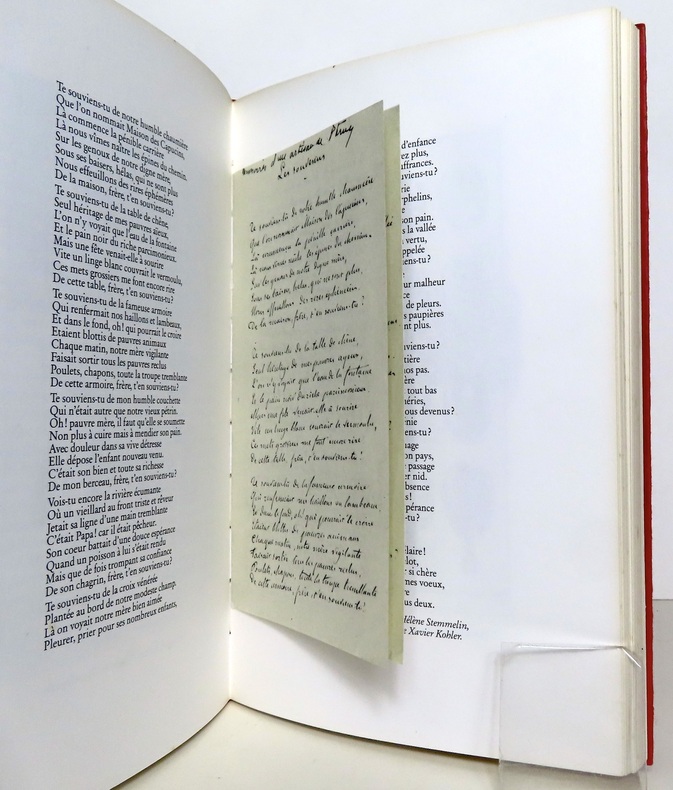 Te souviens-tu de notre humble chaumière
Que l'on nommait Maison des Capucins,
Là commence la pénible carrière.
Là nous vîmes naître les épines du chemin.
Sur les genoux de notre digne mère,
Sous ses baisers, hélas, qui ne sont plus
Nous effeuillons des rires éphémères
De la maison, frère, t'en souviens-tu?
Te souviens-tu de la table de chêne,
Seul héritage de mes pauvres aïeux,
L'on n'y voyait que l'eau de la fontaine
Et le pain noir du riche parcimonieux.
Mais une fête venait-elle à sourire
Vite un linge blanc couvrait le vermoulu,
Ces mets grossiers me font encore rire
De cette table, frère, t'en souviens-tu?
Te souviens-tu de la fameuse armoire
Qui renfermait nos haillons et lambeaux,
Et dans le fond, oh! qui pourrait le croire
Etaient blottis de pauvres animaux
Chaque matin, notre mère vigilante
Faisait sortir tous les pauvres reclus
Poulets, chapons, toute la troupe tremblante
De cette armoire, frère, t'en souviens-tu?
Te souviens-tu de mon humble couchette
Qui n'était autre que notre vieux pétrin.
Oh! pauvre mère, il faut qu'elle se soumette
Non plus à cuire mais à mendier son pain.
Avec douleur dans sa vive détresse
Elle dépose l'enfant nouveau venu.
C'était son bien et toute sa richesse
De mon berceau, frère, t'en souviens-tu?
Vois-tu encore la rivière écumante
Où un vieillard au front triste et rêveur
Jetait sa ligne d'une main tremblante
C'était Papa! car il était pêcheur.
Son coeur battait d'une douce espérance
Quand un poisson à lui s'était rendu
Mais que de fois trompant sa confiance
De son chagrin, frère, t'en souviens-tu?
Te souviens-tu de la croix vénérée
Plantée au bord de notre modeste champ.
Là on voyait notre mère bien aimée
Pleurer, prier pour ses nombreux enfants,
d'un artisan de
Les souvenirs
Te souviens-tu de notre humble chaumière
Que l'on nommait Maison des Capucins,
Là commence la pénible carrière,
Là nous vîmes naître les épines du chemin.
Sur les genoux de notre digne mère,
Sous ses baisers, hélas, qui ne sont plus,
Nous effeuillons des rires éphémères
De la maison, frère, t'en souviens-tu?
Te souviens-tu de la table de chêne,
Seul héritage de mes pauvres aïeux,
L'on n'y voyait que l'eau de la fontaine
Et le pain noir du riche parcimonieux.
Mais une fête venait-elle à sourire
Vite un linge blanc couvrait le vermoulu,
Ces mets grossiers me font encore rire
De cette table, frère, t'en souviens-tu!
Te souviens-tu de la fameuse armoire
Qui renfermait nos haillons et lambeaux,
Et dans le fond, oh! qui pourrait le croire
Etaient blottis de pauvres animaux
Chaque matin, notre mère vigilante
Faisait sortir tous les pauvres reclus,
Poulets, chapons, toute la troupe tremblante
De cette armoire, frère, t'en souviens-tu!
d'enfance
plus,
son pain.
la vallée
vertu,
malheur
de pleurs.
paupières
plus.
pas.
tout bas
devenus?
passage
nid.
si chère
mes voeux,
plus
deux.
Hélène Stemmelin,
Xavier Kohler.